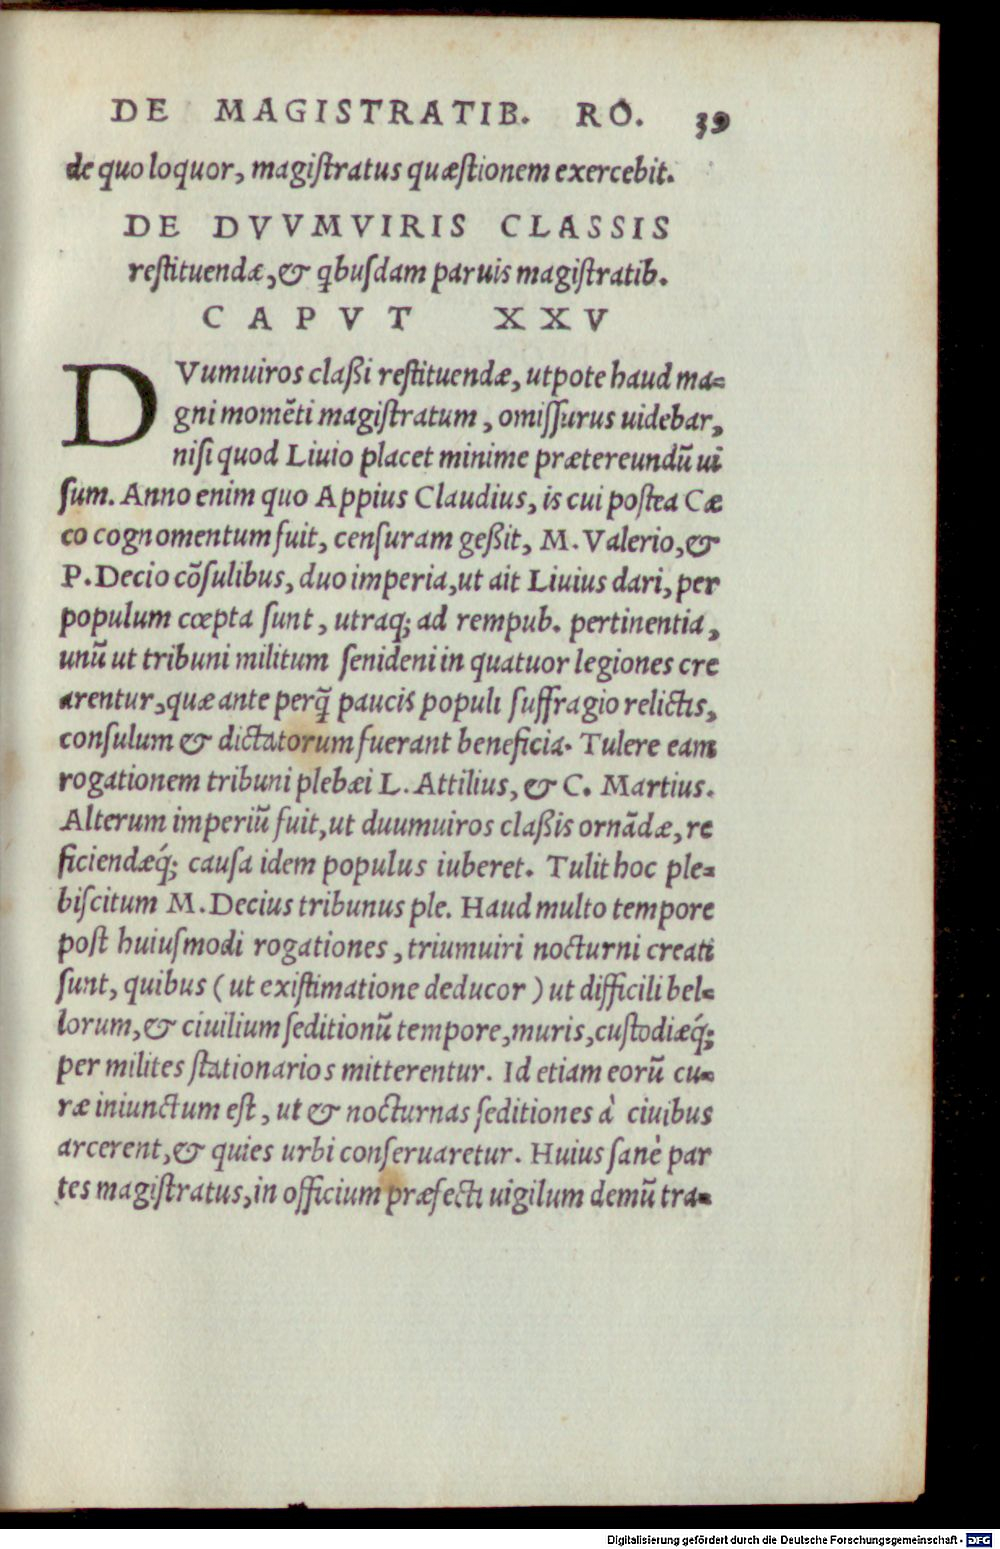 DE MAGISTRATIB. RO. 39
de quo loquor, magiſtratus quæſtionem exercebit.
DE DVVMVIRIS CLASSIS
reſtituendæ, & qbuſdam paruis magiſtratib.
CAPVT XXV
DVumuiros claßi reſtituendæ, utpote haud ma-
gni momēti magiſtratum, omiſſurus uidebar,
niſi quod Liuio placet minime prætereundū ui
ſum. Anno enim quo Appius Claudius, is cui poſtea Cæ
co cognomentum fuit, cenſuram geßit, M. Valerio, &
P. Decio cōſulibus, duo imperia, ut ait Liuius dari, per
populum cœpta ſunt, utraq; ad rempub. pertinentia,
unū ut tribuni militum ſenideni in quatuor legiones cre
arentur, quæ ante perq̄ paucis populi ſuffragio relictis,
conſulum & dictatorum fuerant beneficia. Tulere eam
rogationem tribuni plebæi L. Attilius, & C. Martius.
Alterum imperiū fuit, ut duumuiros claßis ornādæ, re
ficiendæq́; cauſa idem populus iuberet. Tulit hoc ple-
biſcitum M. Decius tribunus ple. Haud multo tempore
poſt huiuſmodi rogationes, triumuiri nocturni creati
ſunt, quibus (ut exiſtimatione deducor) ut difficili bel-
lorum, & ciuilium ſeditionū tempore, muris, cuſtodiæq́;
per milites ſtationarios mitterentur. Id etiam eorū cu-
ræ iniunctum eſt, ut & nocturnas ſeditiones à ciuibus
arcerent, & quies urbi conſeruaretur. Huius ſanè par
tes magiſtratus, in officium præfecti uigilum demū tra-
Digitalisierung gefördert durch die Deutsche Forschungsgemeinschaft - DFG